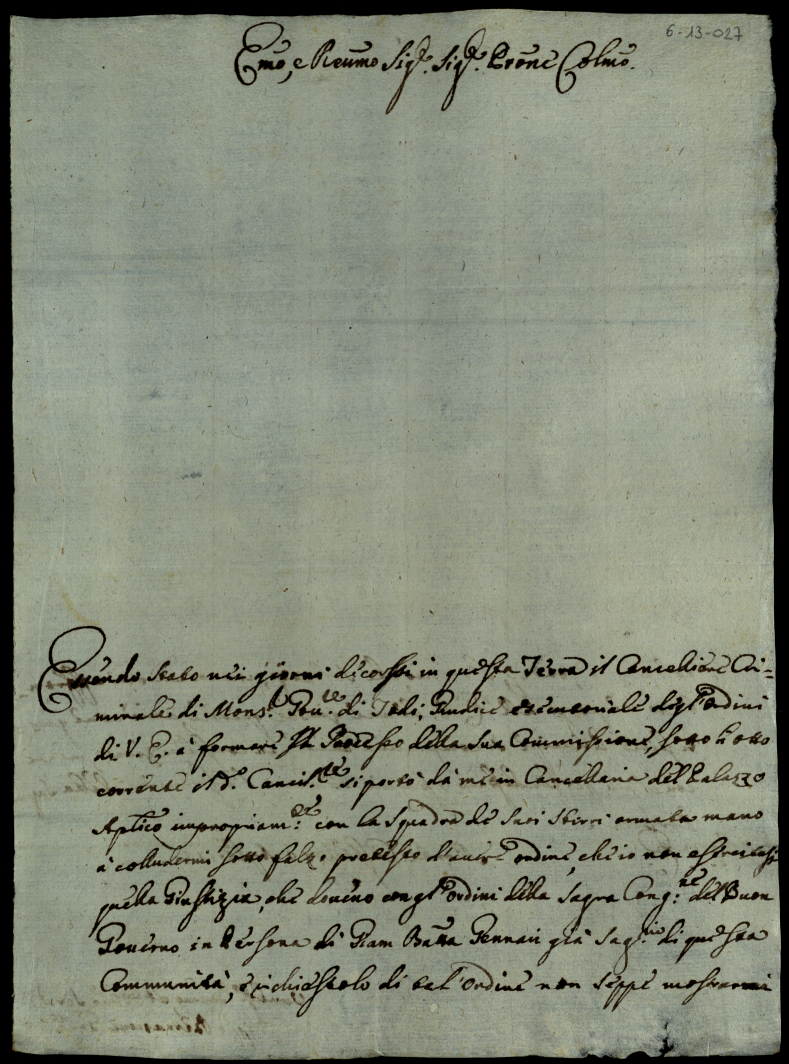 6-13-027
Emo, e Reumo Sig.r Sig.r Prone Colmo.
Essendo stato nei giorni decorsi in questa Terra il Cancelliere Cri=
minale di Mons.r Gou.re di Todi, Giudice degl'ordini
di V. E. à formare il Processo della sua Commissione, sotto li otto
corrente il d.o Cancill.re si portò dà me in Cancellaria del Palazzo
Aplico impropriam.te con la squadra de suoi sbirri armata mano
à colludermi sotto falzo pretesto d'auere ordine, che io non esercitassi
quella Giustizia, che deueuo con gl'ordini della Sagra Cong.ne del Buon
Gouerno in Persona di Giam Batta Gennari già Seg.rio di questa
Communità, e richiestolo di tal'ordine non seppe mostrarmi